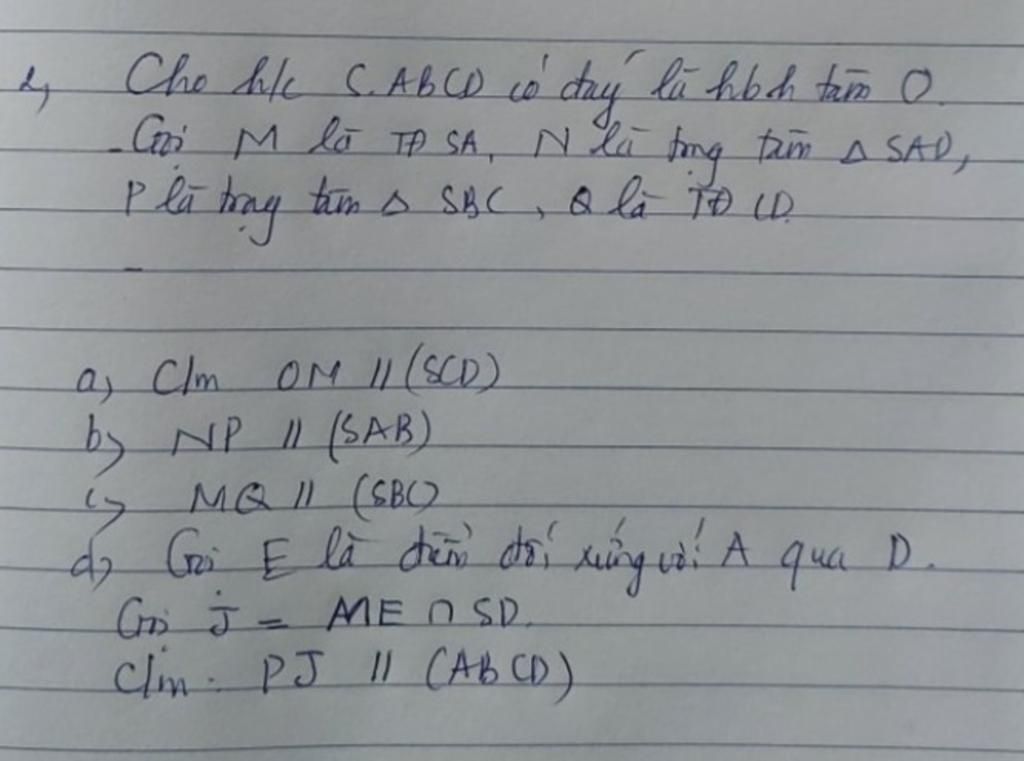 2, Cho h/c S.ABCD có đáy là hbh tâm O.
- Gọi M là TĐ SA, N là trọng tâm Δ SAD,
P là trọng tâm Δ SBC, Q là TĐ CD.
-
a, C/m OM // (SCD)
b, NP // (SAB)
c, MQ // (SBC)
d, Gọi E là điểm đối xứng với A qua D.
Gọi J = ME ∩ SD.
C/m. PJ // (ABCD)